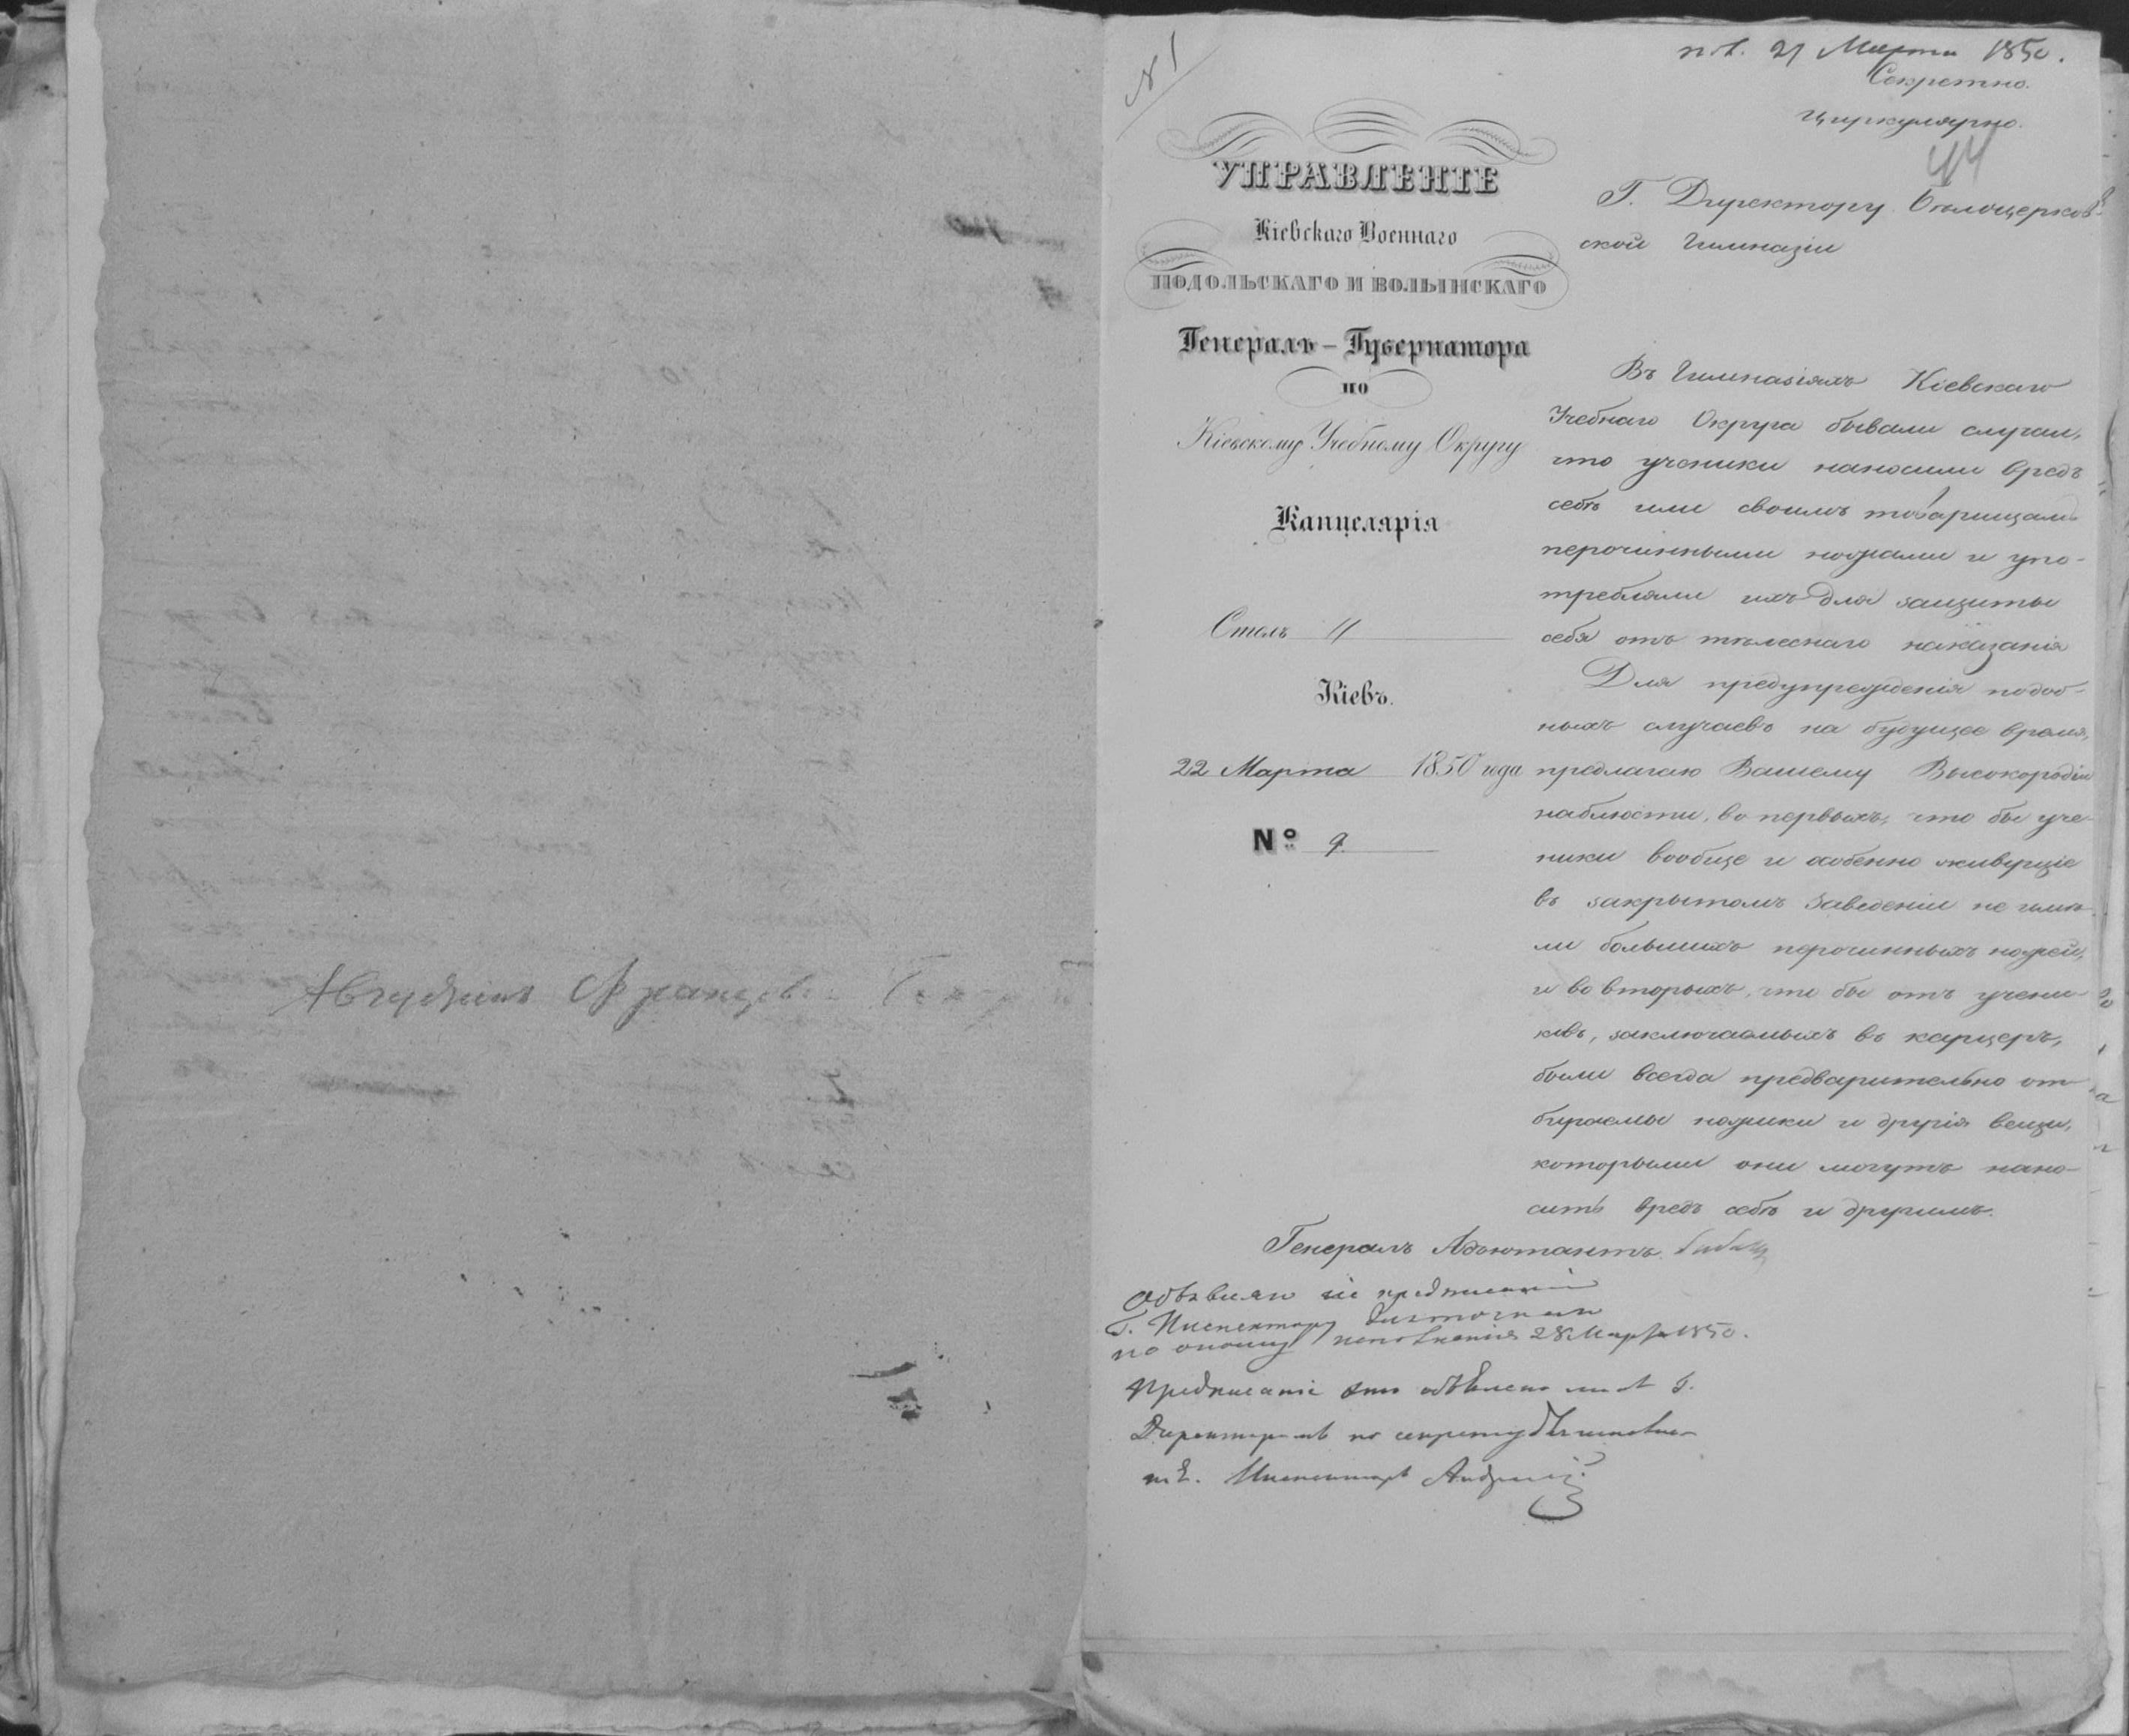 Августинъ
№ 1
пол. 27 Марта 1850.
Секретно.
Циркулярно.
44
УПРАВЛЕНІЕ
Кіевскаго Военнаго
ПОДОЛЬСКАГО И ВОЛЫНСКАГО
Генералъ-Губернатора
по
Кіевскому Учебному Округу
Канцелярія
Столъ
Кіевъ.
22 Марта 1850 года
№ 9.
Г. Директору Бѣлоцерков-
ской Гимназіи
Въ Гимназіяхъ Кіевскаго
Учебнаго Округа бывали случаи,
что ученики наносили вредъ
себѣ или своимъ товарищамъ
перочинными ножами и упо-
требляли ихъ для защиты
себя отъ тѣлеснаго наказанія
Для предупрежденія подоб-
ныхъ случаевъ на будущее время,
предлагаю Вашему Высокородію
наблюсти, во первыхъ, что бы уче-
ники вообще и особенно живущіе
въ закрытомъ заведеніи не имѣ-
ли большихъ перочинныхъ ножей,
и во вторыхъ, что бы отъ учени-
ковъ, заключаемыхъ въ карцеръ,
были всегда предварительно от-
бираемы ножики и другія вещи,
которыми они могутъ нано-
сить вредъ себѣ и другимъ.
Генералъ Адъютантъ Бибиковъ
Объявляю сіе предписаніе
Г. Инспектору
по оному исполненія 28 Марта 1850.
Предписаніе это объявлено мнѣ Г.
Директоромъ по секрету
Инспекторъ